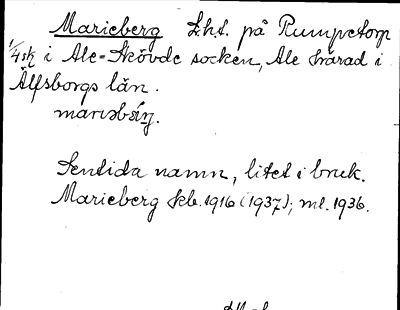 Marieberg Lht. på Rumpetorp
1/4 sk i Ale-Skövde socken, Ale härad i
Älfsborgs län.
Sentida namn, litet i bruk.
Marieberg skb. 1916 (1937); ml. 1936.